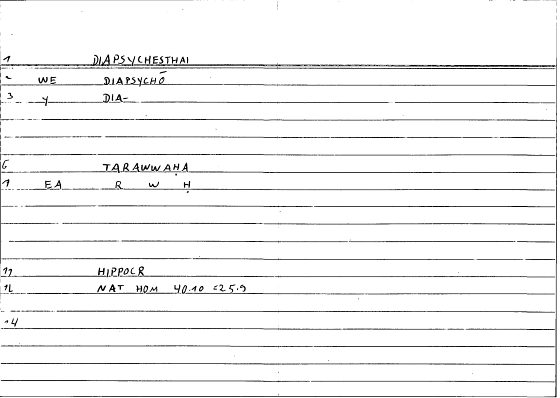 1 DIAPSYCHESTHAI
2 WE DIAPSYCHŌ
3 Y DIA-
6 TARAWWAḤA
7 EA R W Ḥ
11 HIPPOCR
12 NAT HOM 40.10 = 25.9
14